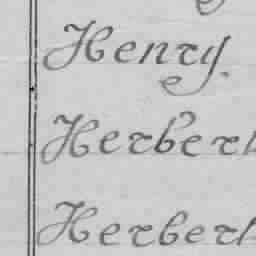 Henry.
Herbert
Herbert